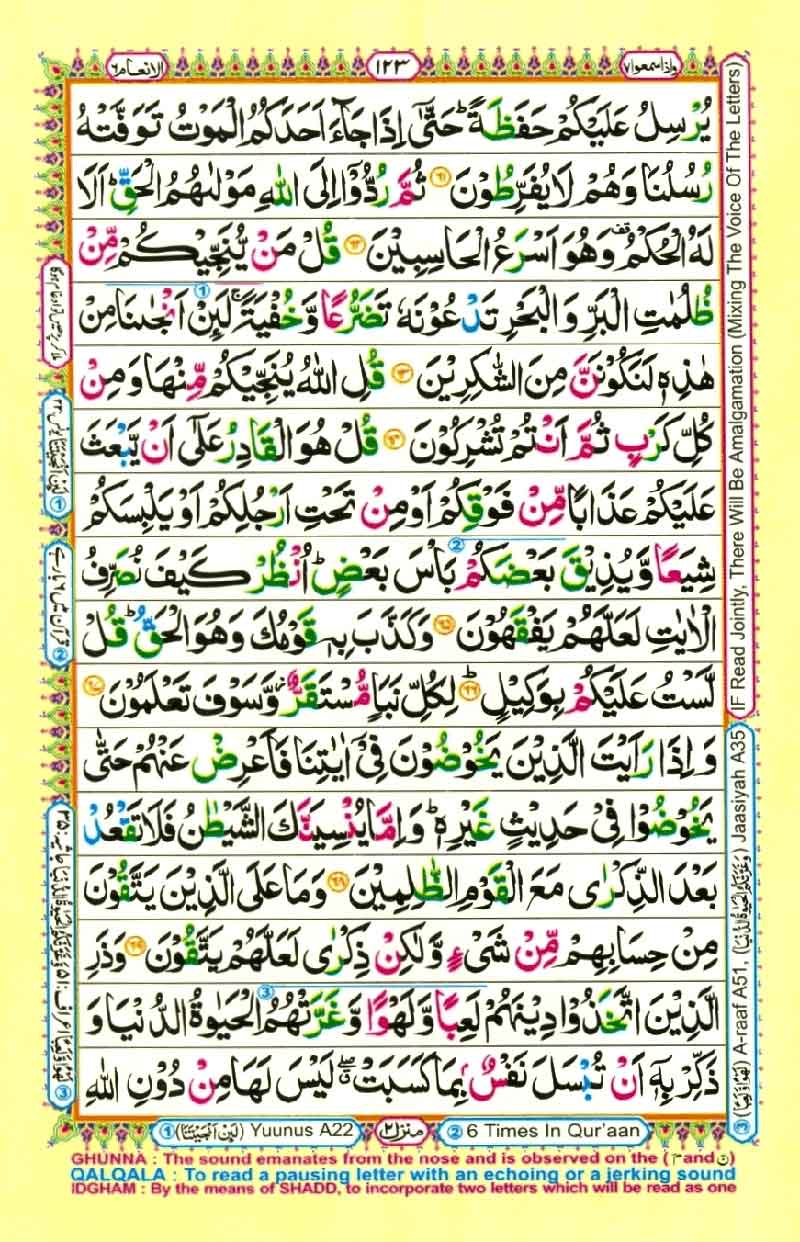 الانعام ٦
١٢٣
واذا سمعوا ٧
يُرْسِلُ عَلَيْكُمْ حَفَظَةً ؕ حَتّٰۤى اِذَا جَآءَ اَحَدَكُمُ الْمَوْتُ تَوَفَّتْهُ
رُسُلُنَا وَهُمْ لَا يُفَرِّطُوْنَ ﴿۶۱﴾ ثُمَّ رُدُّوْۤا اِلَى اللّٰهِ مَوْلٰىهُمُ الْحَقِّ ؕ اَلَا
لَهُ الْحُكْمُ ۟ وَهُوَ اَسْرَعُ الْحَاسِبِيْنَ ﴿۶۲﴾ قُلْ مَنْ يُّنَجِّيْكُمْ مِّنْ
ظُلُمٰتِ الْبَرِّ وَالْبَحْرِ تَدْعُوْنَهٗ تَضَرُّعًا وَّخُفْيَةً ۚ لَئِنْ اَنْجٰىنَا مِنْ
هٰذِهٖ لَنَكُوْنَنَّ مِنَ الشّٰكِرِيْنَ ﴿۶۳﴾ قُلِ اللّٰهُ يُنَجِّيْكُمْ مِّنْهَا وَمِنْ
كُلِّ كَرْبٍ ثُمَّ اَنْتُمْ تُشْرِكُوْنَ ﴿۶۴﴾ قُلْ هُوَ الْقَادِرُ عَلٰۤى اَنْ يَّبْعَثَ
عَلَيْكُمْ عَذَابًا مِّنْ فَوْقِكُمْ اَوْ مِنْ تَحْتِ اَرْجُلِكُمْ اَوْ يَلْبِسَكُمْ
شِيَعًا وَّيُذِيْقَ بَعْضَكُمْ بَاْسَ بَعْضٍ ؕ اُنْظُرْ كَيْفَ نُصَرِّفُ
الْاٰيٰتِ لَعَلَّهُمْ يَفْقَهُوْنَ ﴿۶۵﴾ وَكَذَّبَ بِهٖ قَوْمُكَ وَهُوَ الْحَقُّ ؕ قُلْ
لَّسْتُ عَلَيْكُمْ بِوَكِيْلٍ ﴿۶۶﴾ لِكُلِّ نَبَاٍ مُّسْتَقَرٌّ ز وَّسَوْفَ تَعْلَمُوْنَ ﴿۶۷﴾
وَاِذَا رَاَيْتَ الَّذِيْنَ يَخُوْضُوْنَ فِىْۤ اٰيٰتِنَا فَاَعْرِضْ عَنْهُمْ حَتّٰى
يَخُوْضُوْا فِىْ حَدِيْثٍ غَيْرِهٖ ؕ وَاِمَّا يُنْسِيَنَّكَ الشَّيْطٰنُ فَلَا تَقْعُدْ
بَعْدَ الذِّكْرٰى مَعَ الْقَوْمِ الظّٰلِمِيْنَ ﴿۶۸﴾ وَمَا عَلَى الَّذِيْنَ يَتَّقُوْنَ
مِنْ حِسَابِهِمْ مِّنْ شَىْءٍ وَّلٰكِنْ ذِكْرٰى لَعَلَّهُمْ يَتَّقُوْنَ ﴿۶۹﴾ وَذَرِ
الَّذِيْنَ اتَّخَذُوْا دِيْنَهُمْ لَعِبًا وَّلَهْوًا وَّغَرَّتْهُمُ الْحَيٰوةُ الدُّنْيَا وَ
ذَكِّرْ بِهٖۤ اَنْ تُبْسَلَ نَفْسٌۢ بِمَا كَسَبَتْ ۖۗ لَيْسَ لَهَا مِنْ دُوْنِ اللّٰهِ
(IF Read Jointly, There Will Be Amalgamation (Mixing The Voice Of The Letters)
③ (لَهْوًا وَّلَعِبًا) A-raaf A51, (وَغَرَّتْكُمُ الْحَيٰوةُ الدُّنْيَا) Jaasiyah A35
① (لَئِنْ اَنْجَيْتَنَا) Yuunus A22
منزل ٢
② 6 Times In Qur'aan
GHUNNA : The sound emanates from the nose and is observed on the (م and ن)
QALQALA : To read a pausing letter with an echoing or a jerking sound
IDGHAM : By the means of SHADD, to incorporate two letters which will be read as one